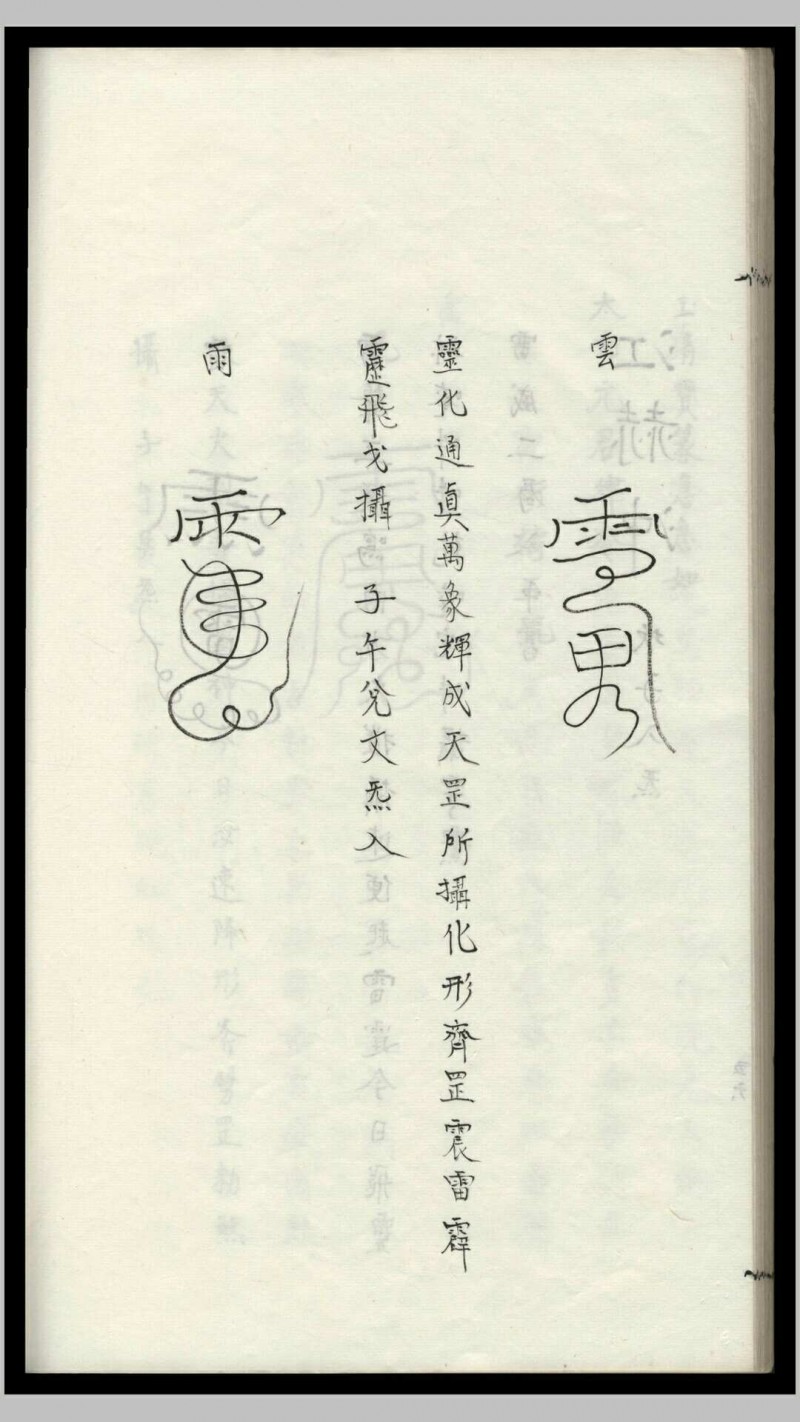 雲
靈化通眞萬象輝成天罡所攝化形齊罡震雷霹
靂飛戈攝 子午兌文炁入
雨